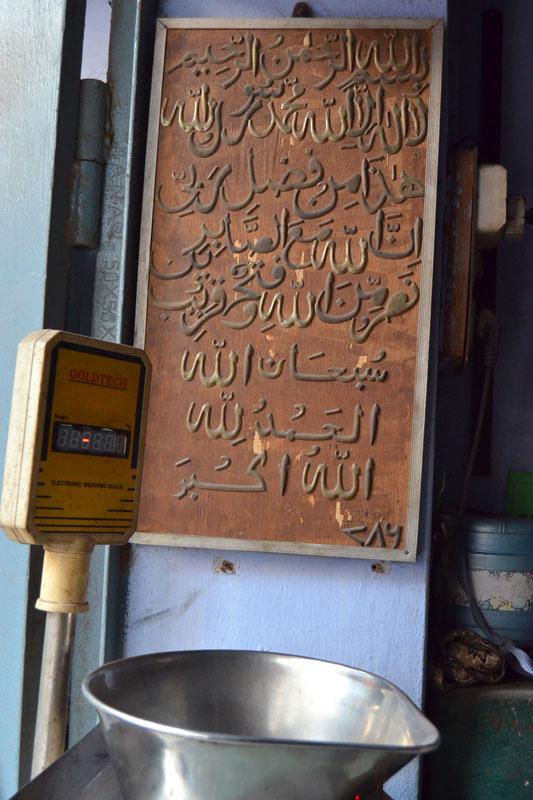 بِسْمِ اللهِ الرَّحْمٰنِ الرَّحِيْمِ
لا اله الا الله محمد رسول الله
هٰذَا مِنْ فَضْلِ رَبِّيْ
اِنَّ اللهَ مَعَ الصَّابِرِيْنَ
نَصْرٌ مِّنَ اللهِ وَفَتْحٌ قَرِيْبٌ
سُبْحَانَ الله
الحَمْدُ لِلّٰه
اللهُ اكْبَرَ
۷۸۶
GOLDTECH
Weight
ELECTRONIC WEIGHING SCALE